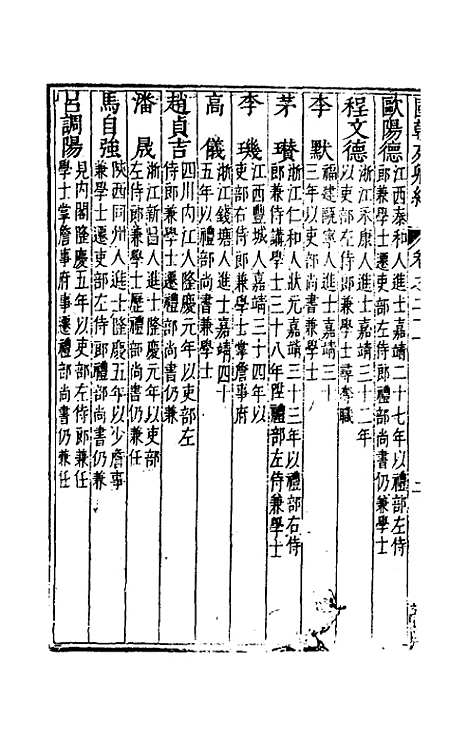 國朝列卿紀 卷之二十 二
歐陽德 江西泰和人進士嘉靖二十七年以禮部左侍
郎兼學士遷吏部左侍郎禮部尚書仍兼學士
程文德 浙江永康人進士嘉靖三十二年
以吏部左侍郎兼學士尋奪職
李默 福建甌寧人進士嘉靖三十
三年以吏部尚書兼學士
茅瓚 浙江仁和人狀元嘉靖三十三年以禮部右侍
郎兼侍講學士三十八年陞禮部左侍兼學士
李璣 江西豐城人嘉靖三十四年以
吏部右侍郎兼學士掌詹事府
高儀 浙江錢塘人進士嘉靖四十
五年以禮部尚書兼學士
趙貞吉 四川內江人隆慶元年以吏部左
侍郎兼學士遷禮部尚書仍兼
潘晟 浙江新昌人進士隆慶元年以吏部
左侍郎兼學士歷禮部尚書仍兼任
馬自強 陝西同州人進士隆慶五年以少詹事
兼學士遷吏部左侍郎禮部尚書仍兼
呂調陽 見內閣隆慶五年以吏部左侍郎兼任
學士掌詹事府事遷禮部尚書仍兼任